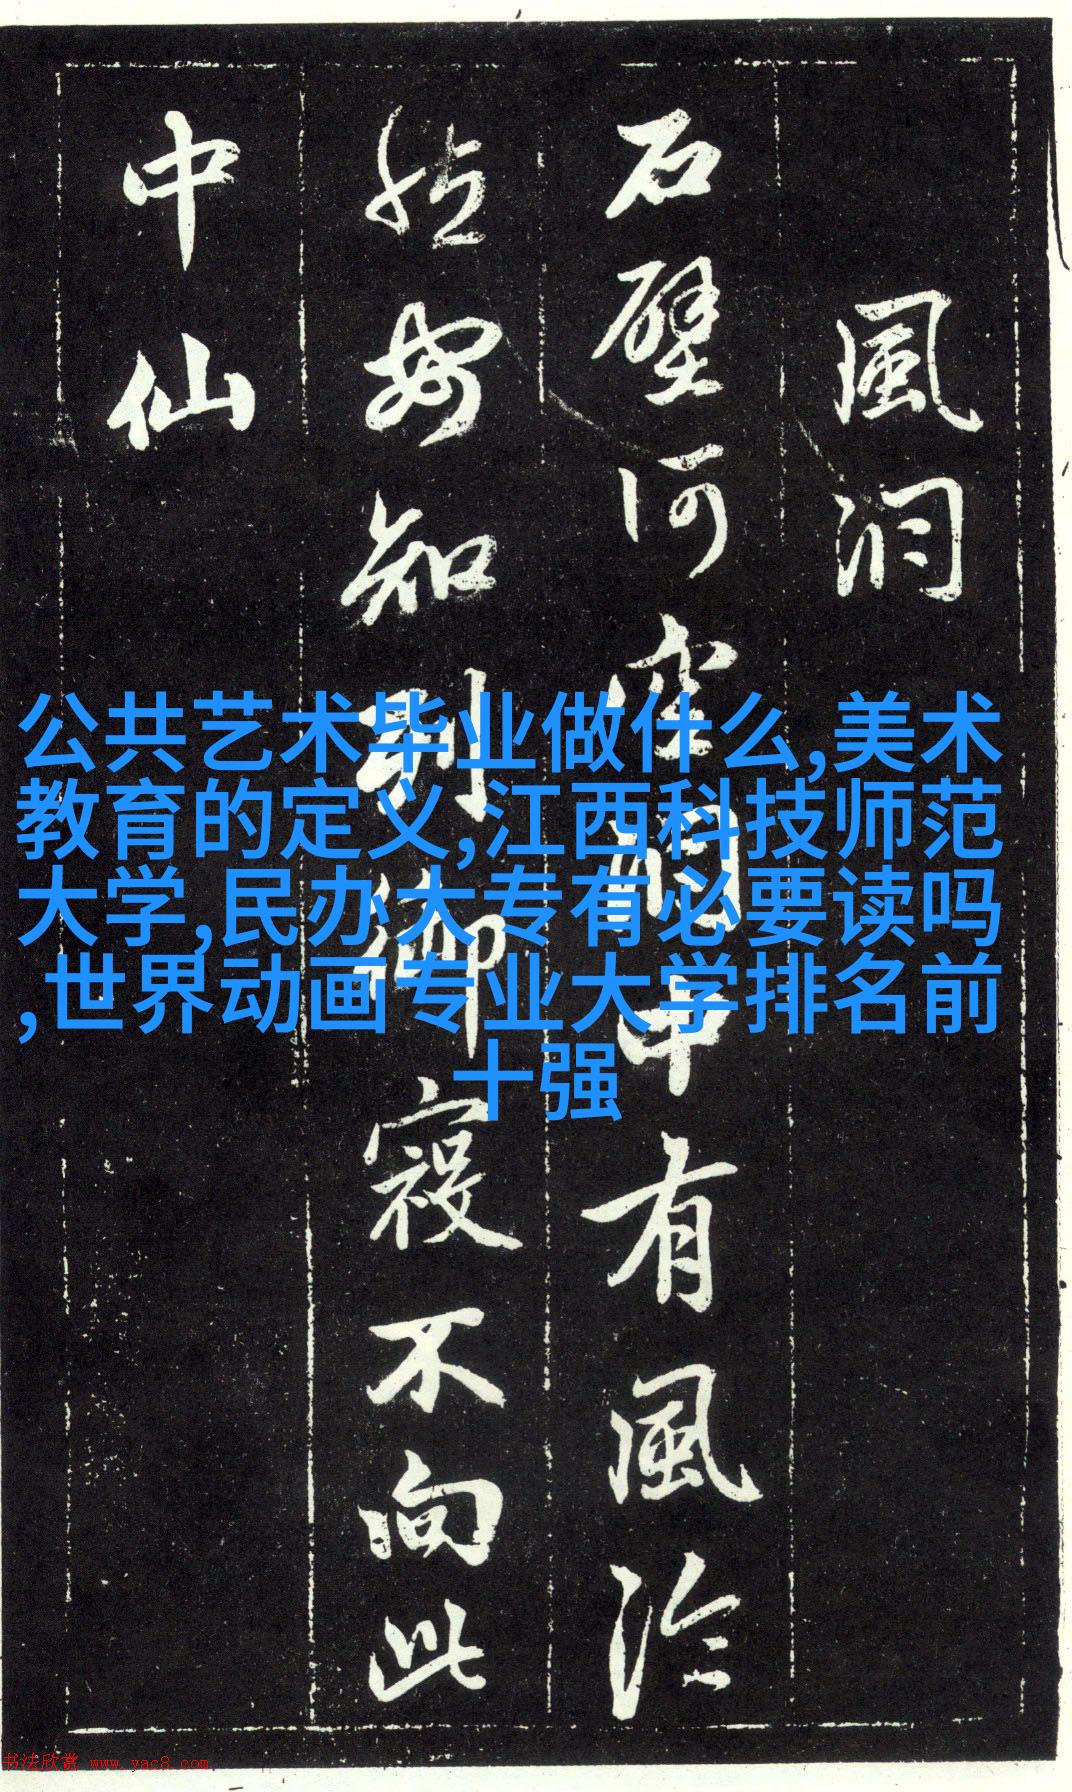 風洞
石壁何空洞中有風泠
然安知列御寇不向此
中仙
公共艺术毕业做什么,美术
教育的定义,江西科技师范
大学,民办大专有必要读吗
,世界动画专业大学排名前
十强
书法欣赏 www.yac8.com